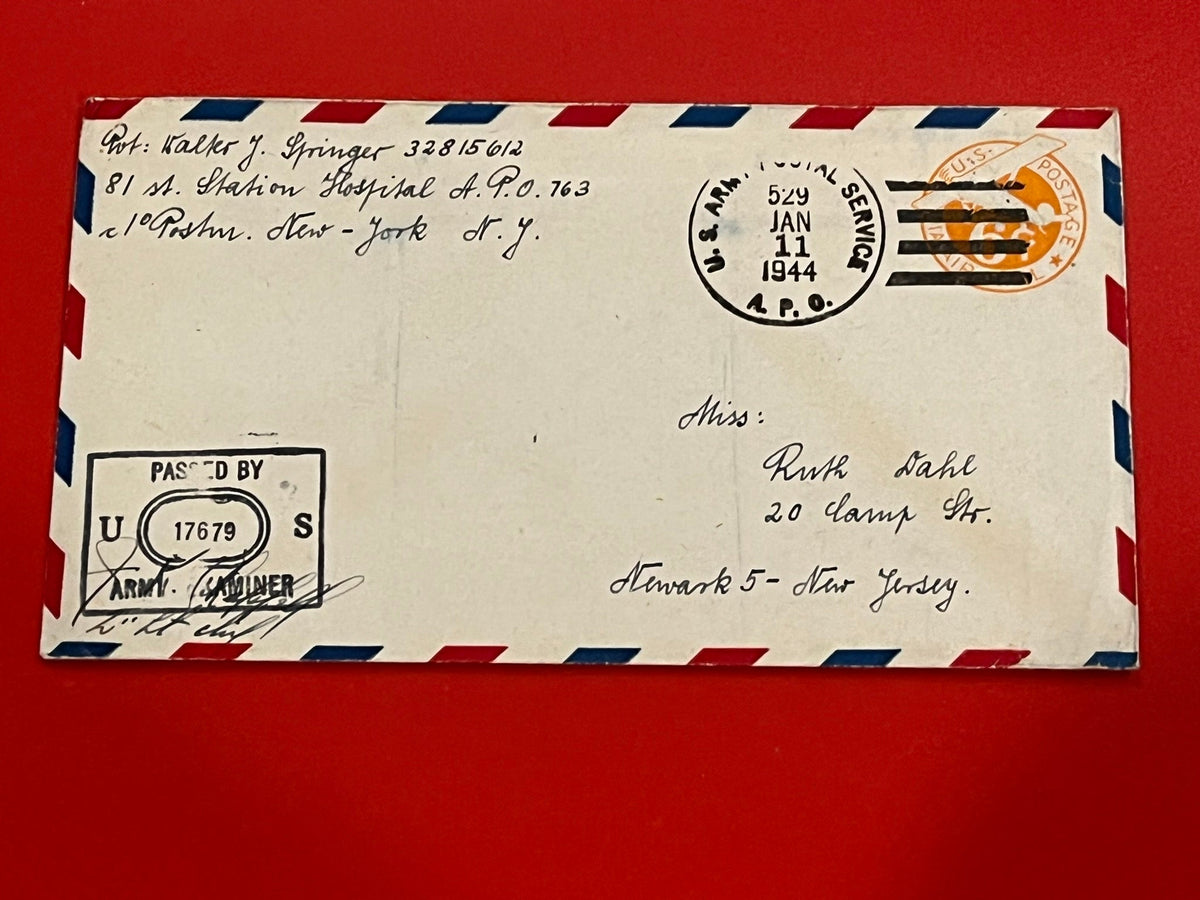 Pvt: Walter J. Springer 32815612
81 st. Station Hospital A.P.O. 763
c/o Postm. New-York N.Y.
U.S. ARMY POSTAL SERVICE
529
JAN
11
1944
A. P. O.
U.S. POSTAGE
6¢
AIR MAIL
Miss:
Ruth Dahl
20 Camp Str.
Newark 5- New Jersey.
PASSED BY
U 17679 S
ARMY EXAMINER